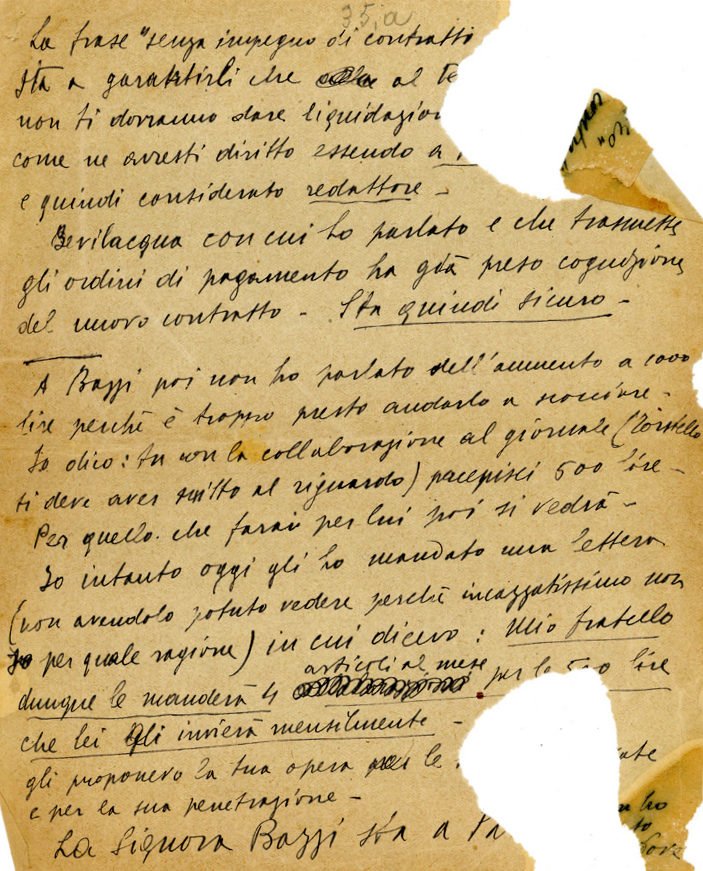 35, a
La frase "senza impegno di contratti
sta a garantirti che al
non ti dovranno dare liquidazion
come ne avresti diritto essendo a
e quindi considerato redattore -
Bevilacqua con cui ho parlato e che trasmette
gli ordini di pagamento ha già preso cognizione
del nuovo contratto - Sta quindi sicuro -
A Bazzi poi non ho parlato dell'aumento a 1000
lire perché è troppo presto andarlo a scocciare -
Io dico: tu con la collaborazione al giornale (
ti deve aver scritto al riguardo) percepisci 500 lire -
Per quello che farai per lui poi si vedrà -
Io intanto oggi gli ho mandato una lettera
(non avendolo potuto vedere perché incazzatissimo non
so per quale ragione) in cui dicevo: Mio fratello
articoli al mese
dunque le manderà 4 per le 500 lire
che lei gli invierà mensilmente -
gli proponevo la tua opera per le ate
e per la sua penetrazione -
La Signora Bazzi sta a
ho
to